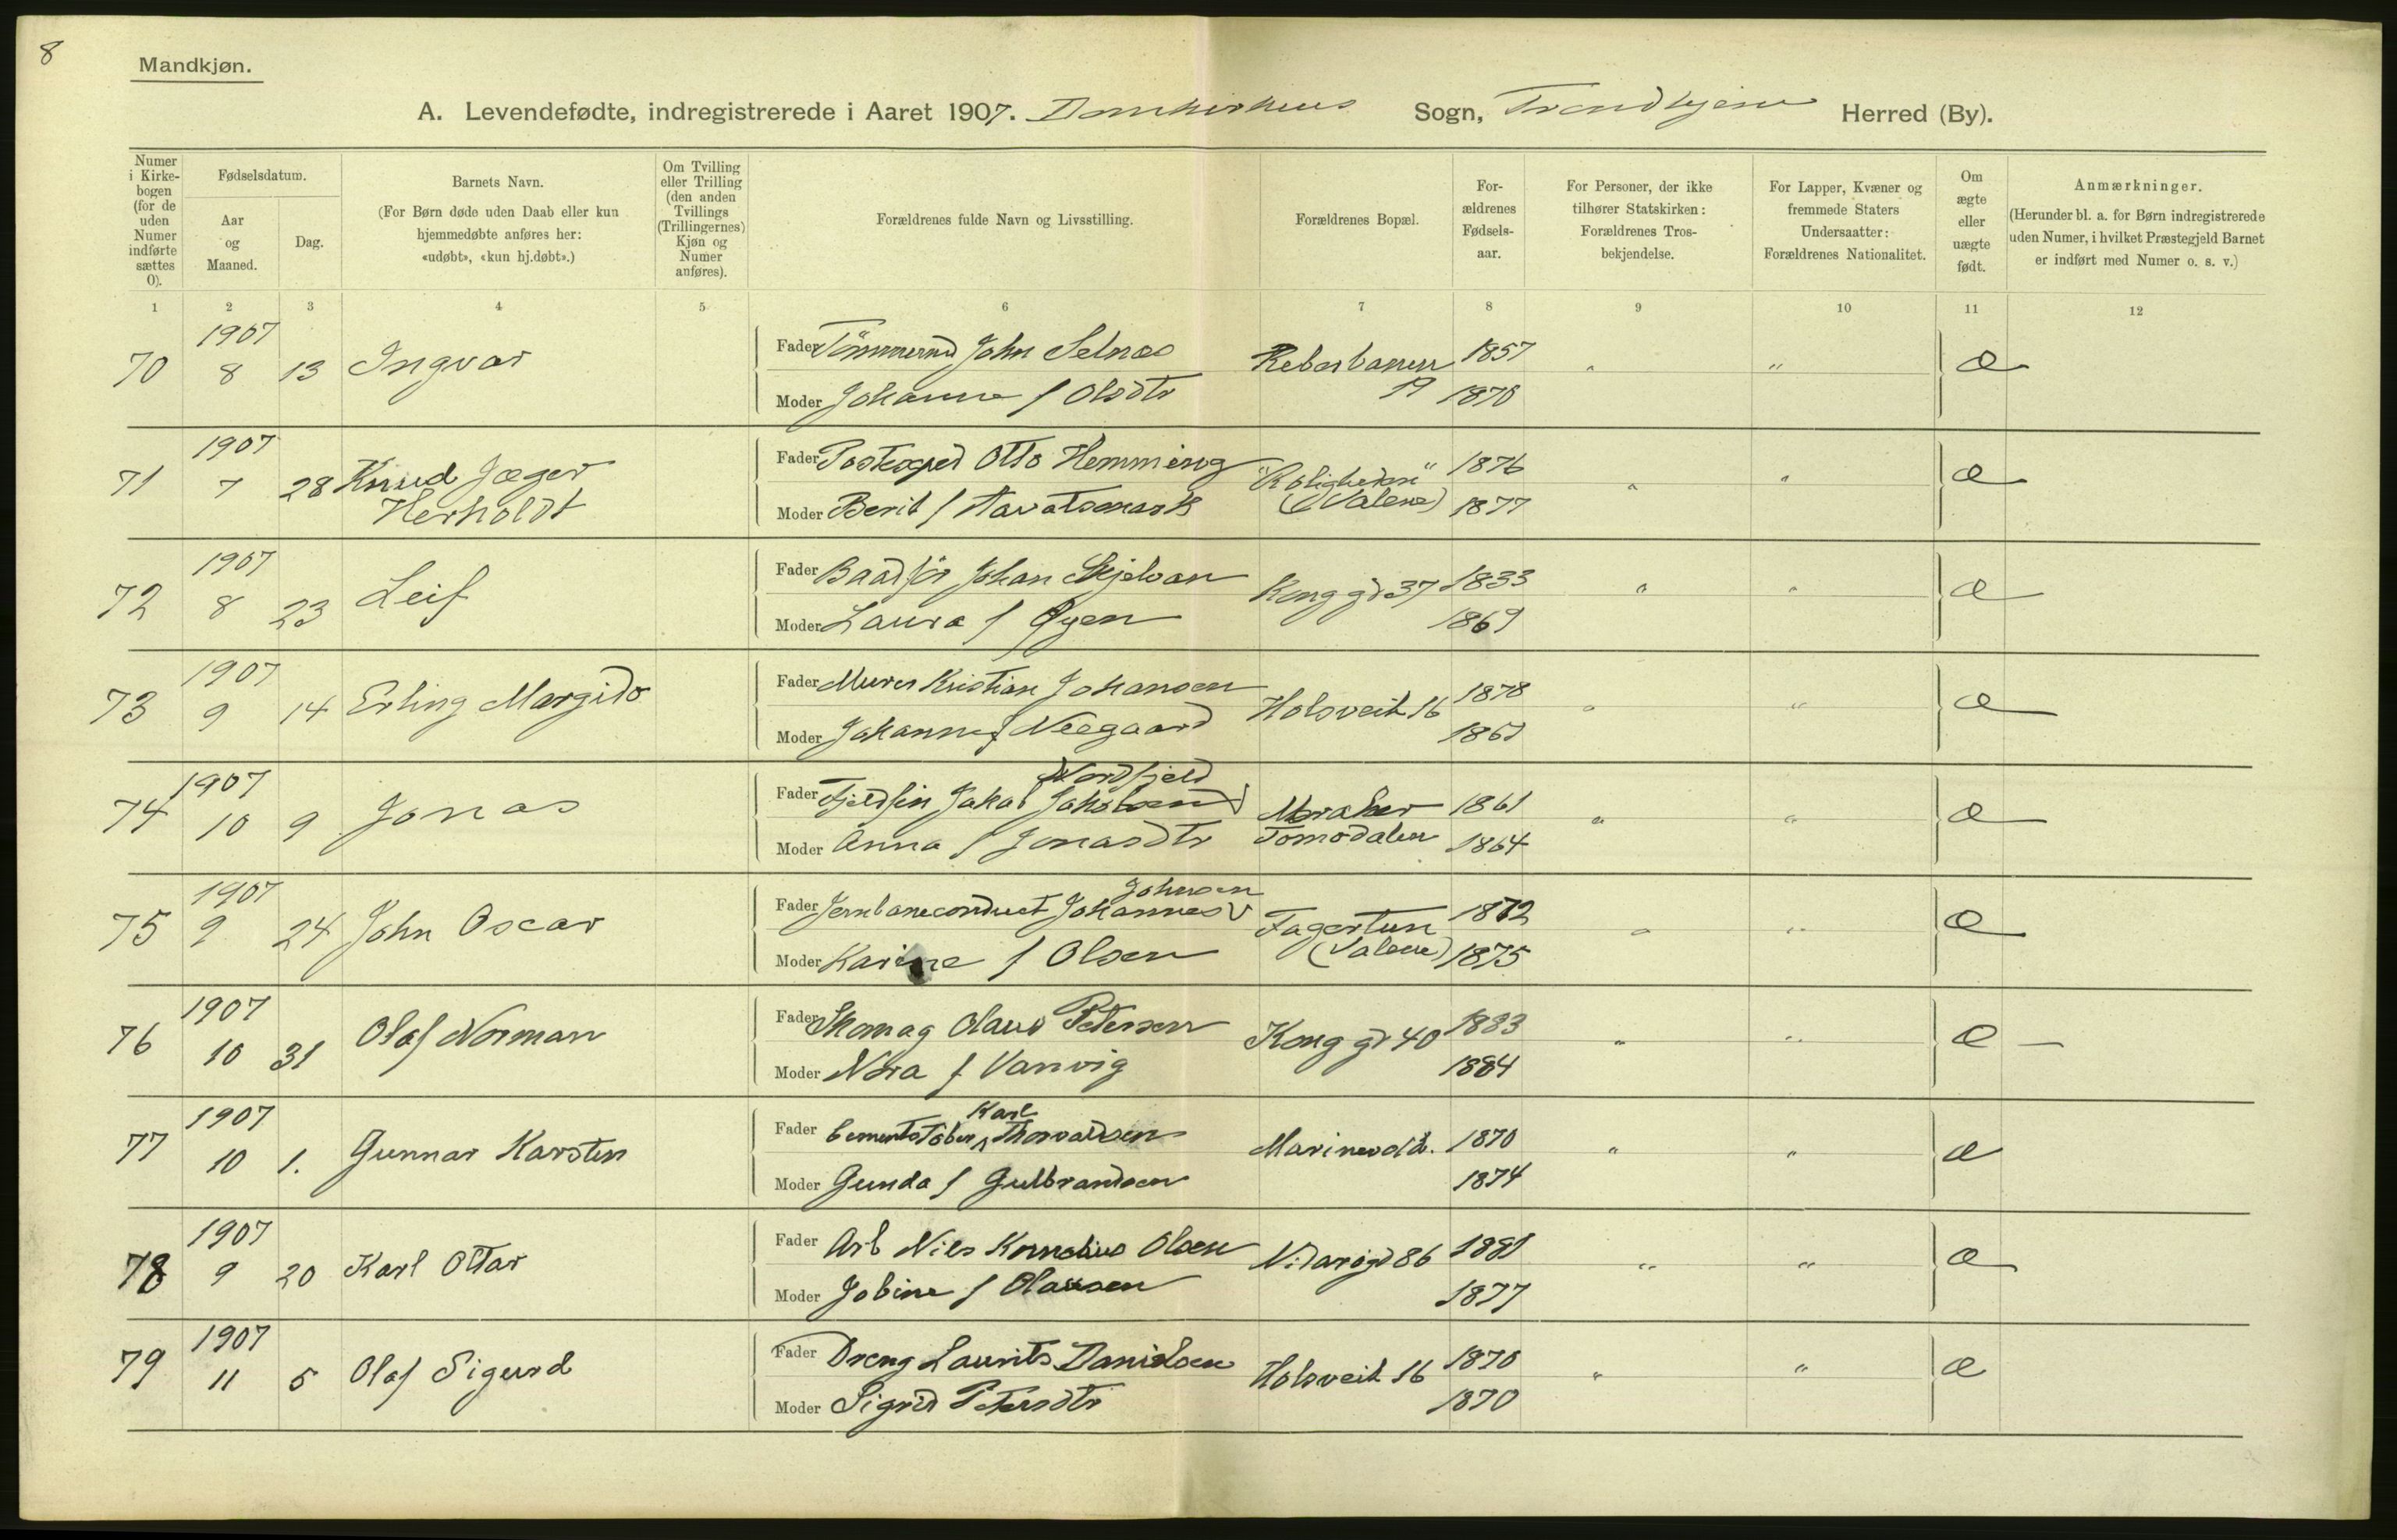 8
Mandkjøn.
A. Levendefødte, indregistrerede i Aaret 1907. Domkirkens Sogn, Trondhjem Herred (By).
Numer i Kirkebogen (for de uden Numer indførte sættes 0).
Fødselsdatum.
Aar og Maaned.
Dag.
Barnets Navn.
(For Børn døde uden Daab eller kun hjemmedøbte anføres her: «udøbt», «kun hj.døbt».)
Om Tvilling eller Trilling (den anden Tvillings (Trillingernes) Kjøn og Numer anføres).
Forældrenes fulde Navn og Livsstilling.
Forældrenes Bopæl.
For-ældrenes Fødsels-aar.
For Personer, der ikke tilhører Statskirken: Forældrenes Tros-bekjendelse.
For Lapper, Kvæner og fremmede Staters Undersaatter: Forældrenes Nationalitet.
Om ægte eller uægte født.
Anmærkninger.
(Herunder bl. a. for Børn indregistrerede uden Numer, i hvilket Præstegjeld Barnet er indført med Numer o. s. v.)
1 2 3 4 5 6 7 8 9 10 11 12
1907
70 8 13 Ingvar Fader Tömmermd John Selnæs Reberbanen 1857 " " Æ
Moder Johanne f Olsdtr 19 1870
1907
71 7 28 Knud Jæger Fader Postexped Otto Hemming "Roligheden" 1876 " " Æ
Herholdt Moder Berit f (Valene) 1877
1907
72 8 23 Leif Fader Baadför Johan Skjelvan Kong gd 37 1833 " " Æ
Moder Laura f Øyen 1869
1907
73 9 14 Erling Margido Fader Murer Kristian Johansen Holsveit 16 1878 " " Æ
Moder Johanne f Neegaard
1907 Nordfjeld
74 10 9 Jonas Fader Jakob Jakobsen Meraker 1861 " " Æ
Moder Anna f Jonasdtr Tomsdalen 1864
1907 Johnsen
75 9 24 John Oscar Fader Jernbaneconduct Johannes Fagertun 1872 " " Æ
Moder Karine f Olsen (Valene) 1875
1907
76 10 31 Olaf Norman Fader Skomag Olaus Petersen Kong gd 40 1883 " " Æ —
Moder Nora f Vanvig 1884
1907 Karl
77 10 1. Gunnar Karsten Fader Cementstöber Thorvaldsen 1870 " " Æ
Moder Gunda f Gulbrandsen 1874
1907
78 9 20 Karl Ottar Fader Arb Nils Kornelius Olsen Nidarögd 86 1881 " " Æ
Moder Jobine f Olaussen 1877
1907
79 11 5 Olaf Sigurd Fader Dreng Laurits Danielsen Holsveit 16 1870 " " Æ
Moder Sigrid Petersdtr 1870